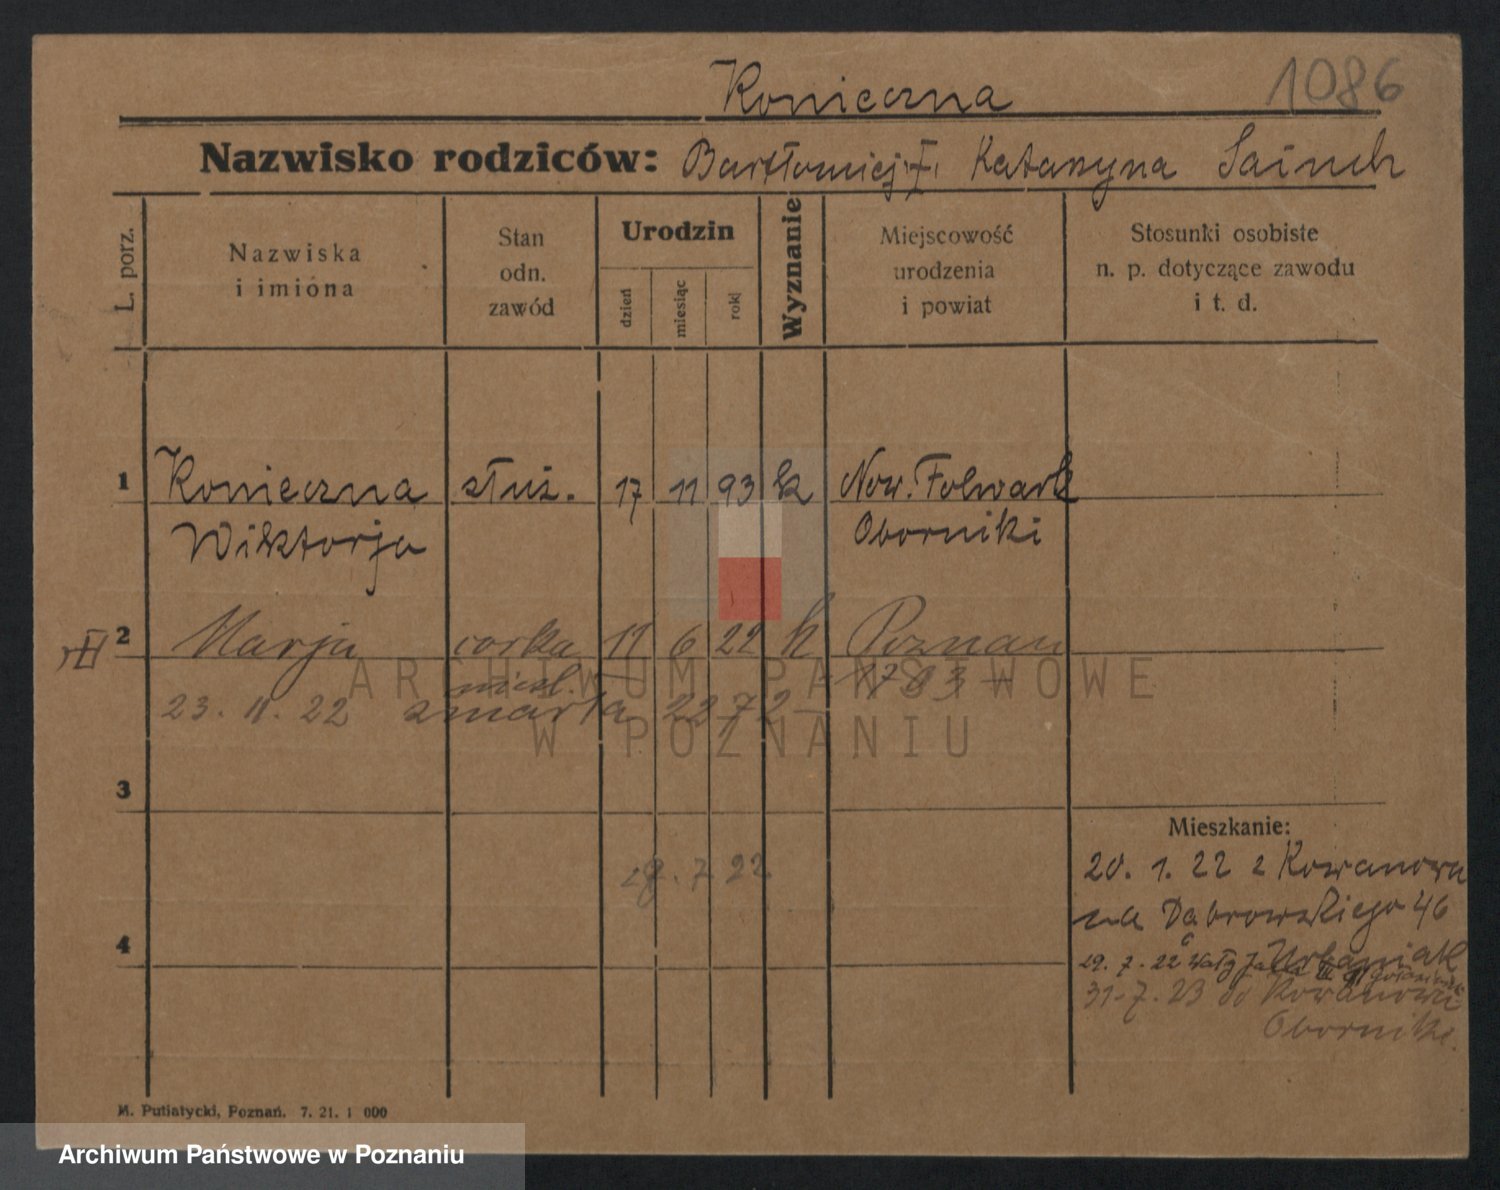 Konieczna 1086
Nazwisko rodziców: Bartłomiej i Katarzyna
L. porz.
Nazwiska i imiona
Stan odn. zawód
Urodzin
dzień
miesiąc
rok
Wyznanie
Miejscowość urodzenia i powiat
Stosunki osobiste n. p. dotyczące zawodu i t. d.
1 Konieczna służ. 17 11 93 k Now. Folwark
Wiktorja Oborniki
2 Marja corka 11 6 22 k Poznan
niezl. 1783
23. 11. 22 zmarła 2272
ARCHIWUM PAŃSTWOWE
W POZNANIU
3
Mieszkanie:
29. 7. 22
20. 1. 22 z Kowanowa
na Dąbrowskiego 46
4
Urbaniak
29. 7. 22 Wały
31. 7. 23 do Kowanowa
Oborniki.
M. Putiatycki, Poznań. 7. 21. 1 000
Archiwum Państwowe w Poznaniu